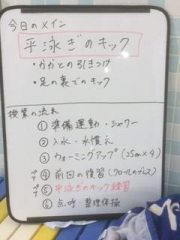 今日のメイン
平泳ぎのキック
・かかとの引きつけ
・足の裏でのキック
授業の流れ
① 準備運動・シャワー
② 入水・水慣れ
③ ウォーミングアップ (25m×4)
④ 前回の復習 (クロールのブレス)
⑤ 平泳ぎのキック練習
⑥ 点呼・整理体操